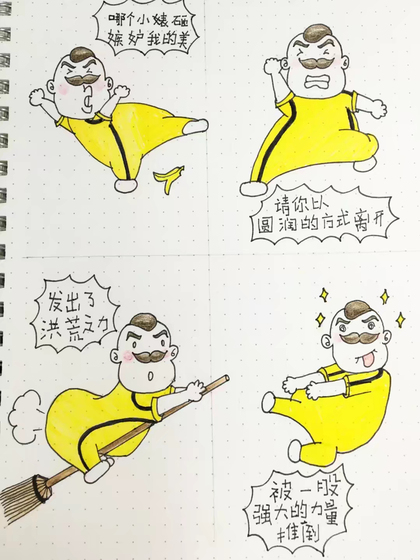 哪个小婊砸
嫉妒我的美
请你以
圆润的方式离开
发出了
洪荒之力
被一股
强大的力量
推倒